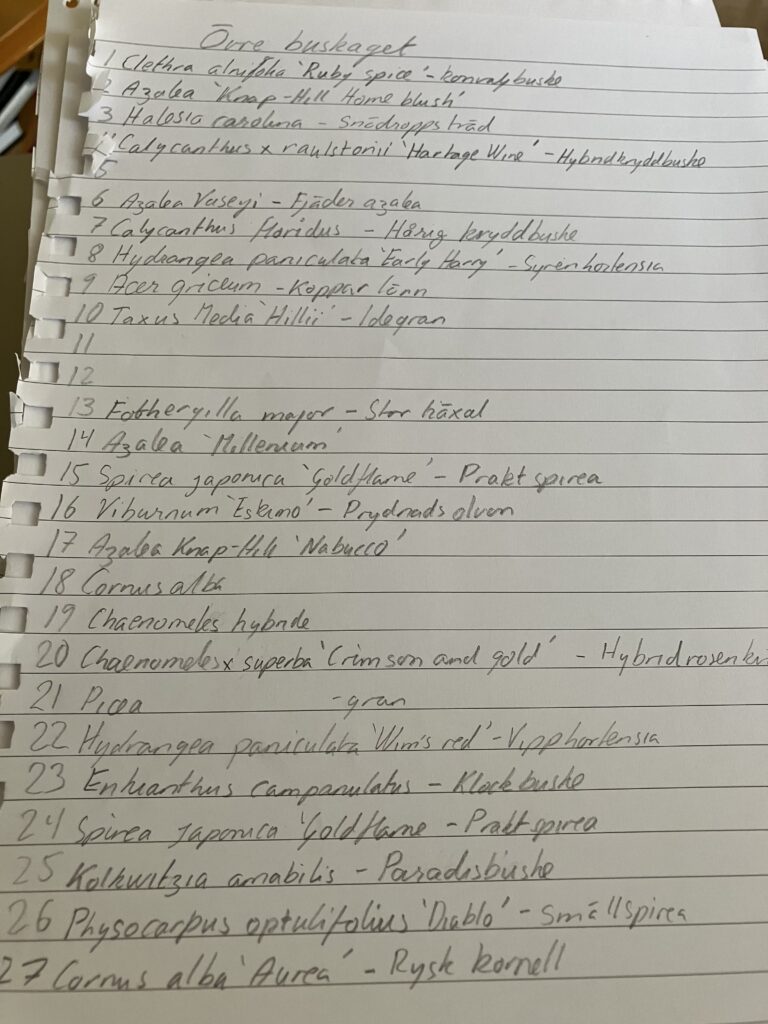 Övre buskaget
1 Clethra alnifolia 'Ruby spice' - konvaljbuske
2 Azalea 'Knap-Hill Home blush'
3 Halesia carolina - Snödroppsträd
4 Calycanthus x raulstonii 'Hartage Wine' - Hybridkryddbuske
5
6 Azalea Vaseyi - Fjäder azalea
7 Calycanthus floridus - Hårig kryddbuske
8 Hydrangea paniculata 'Early Harry' - Syrénhortensia
9 Acer griceum - Koppar lönn
10 Taxus Media 'Hillii' - Idegran
11
12
13 Fothergilla major - Stor häxal
14 Azalea 'Millenium'
15 Spirea japonica 'Goldflame' - Prakt spirea
16 Viburnum 'Eskimo' - Prydnads olvon
17 Azalea Knap-Hill 'Nabucco'
18 Cornus alba
19 Chaenomeles hybride
20 Chaenomeles x superba 'Crimson and gold' - Hybridrosenkv
21 Picea - gran
22 Hydrangea paniculata 'Wim's red' - Vipphortensia
23 Enkianthus campanulatus - Klockbuske
24 Spirea japonica 'Goldflame - Praktspirea
25 Kolkwitzia amabilis - Paradisbuske
26 Physocarpus optulifolius 'Diablo' - Smällspirea
27 Cornus alba 'Aurea' - Rysk kornell